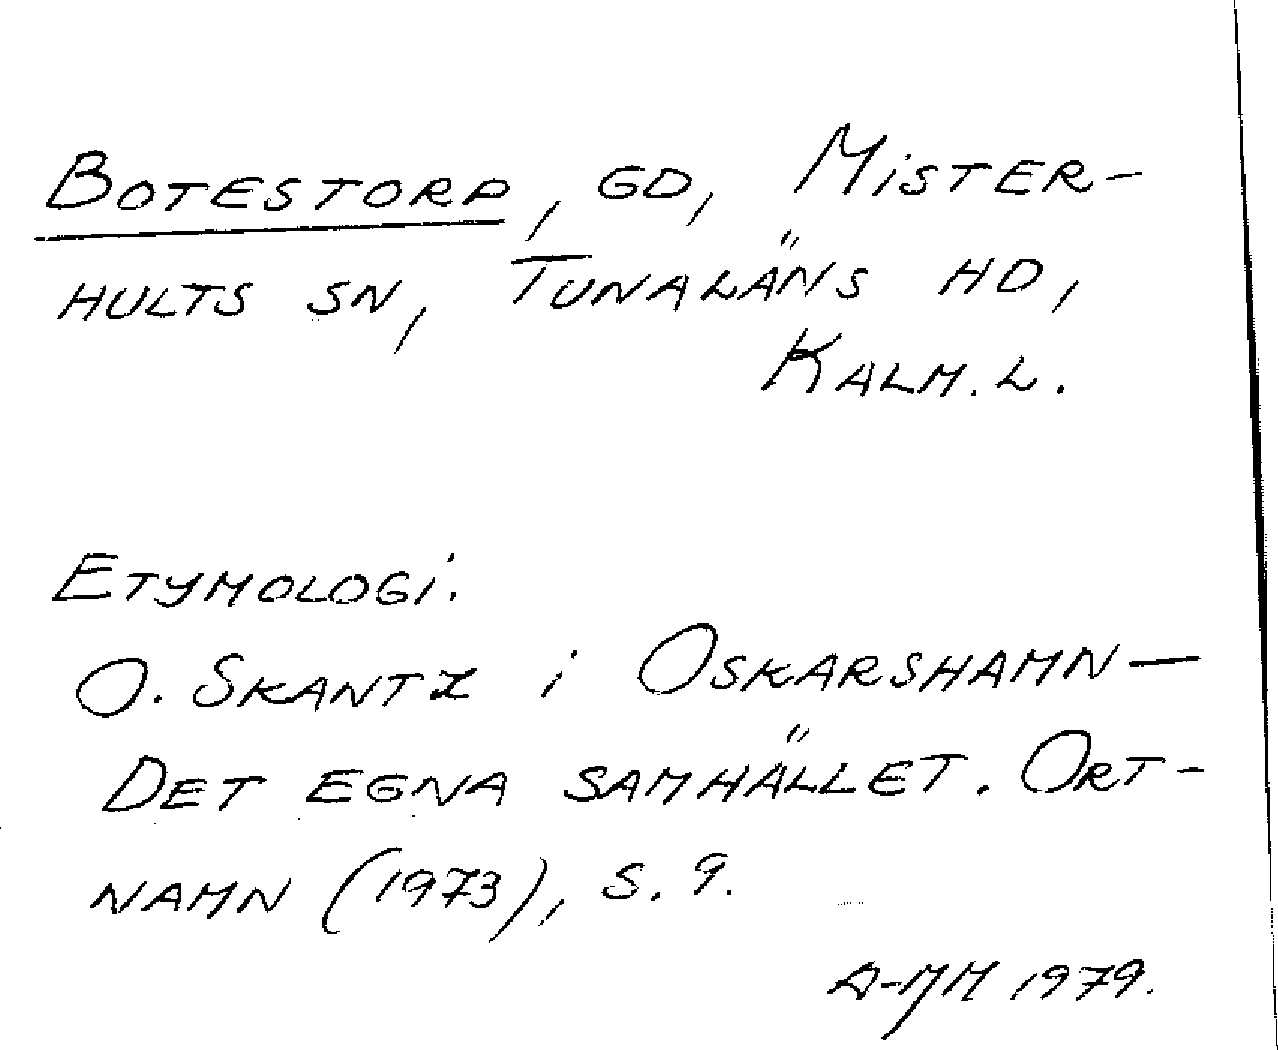 Botestorp, gd, Mister-
hults sn, Tunaläns hd,
Kalm. l.
Etymologi.
O. Skantz i Oskarshamn —
Det egna samhället. Ort-
namn (1973), s. 9.
A-MM 1979.